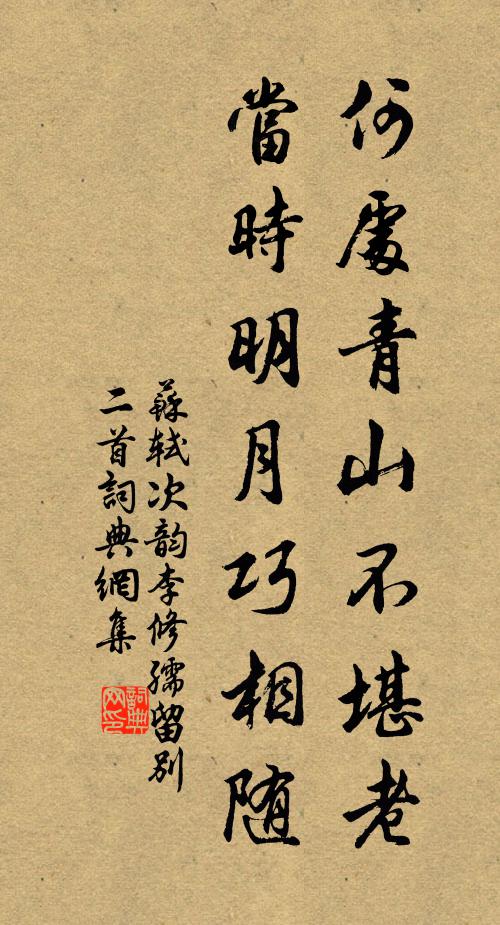 何處青山不堪老
當時明月巧相隨
蘇軾次韵李修孺留别
二首詞典網集
詞典
网印